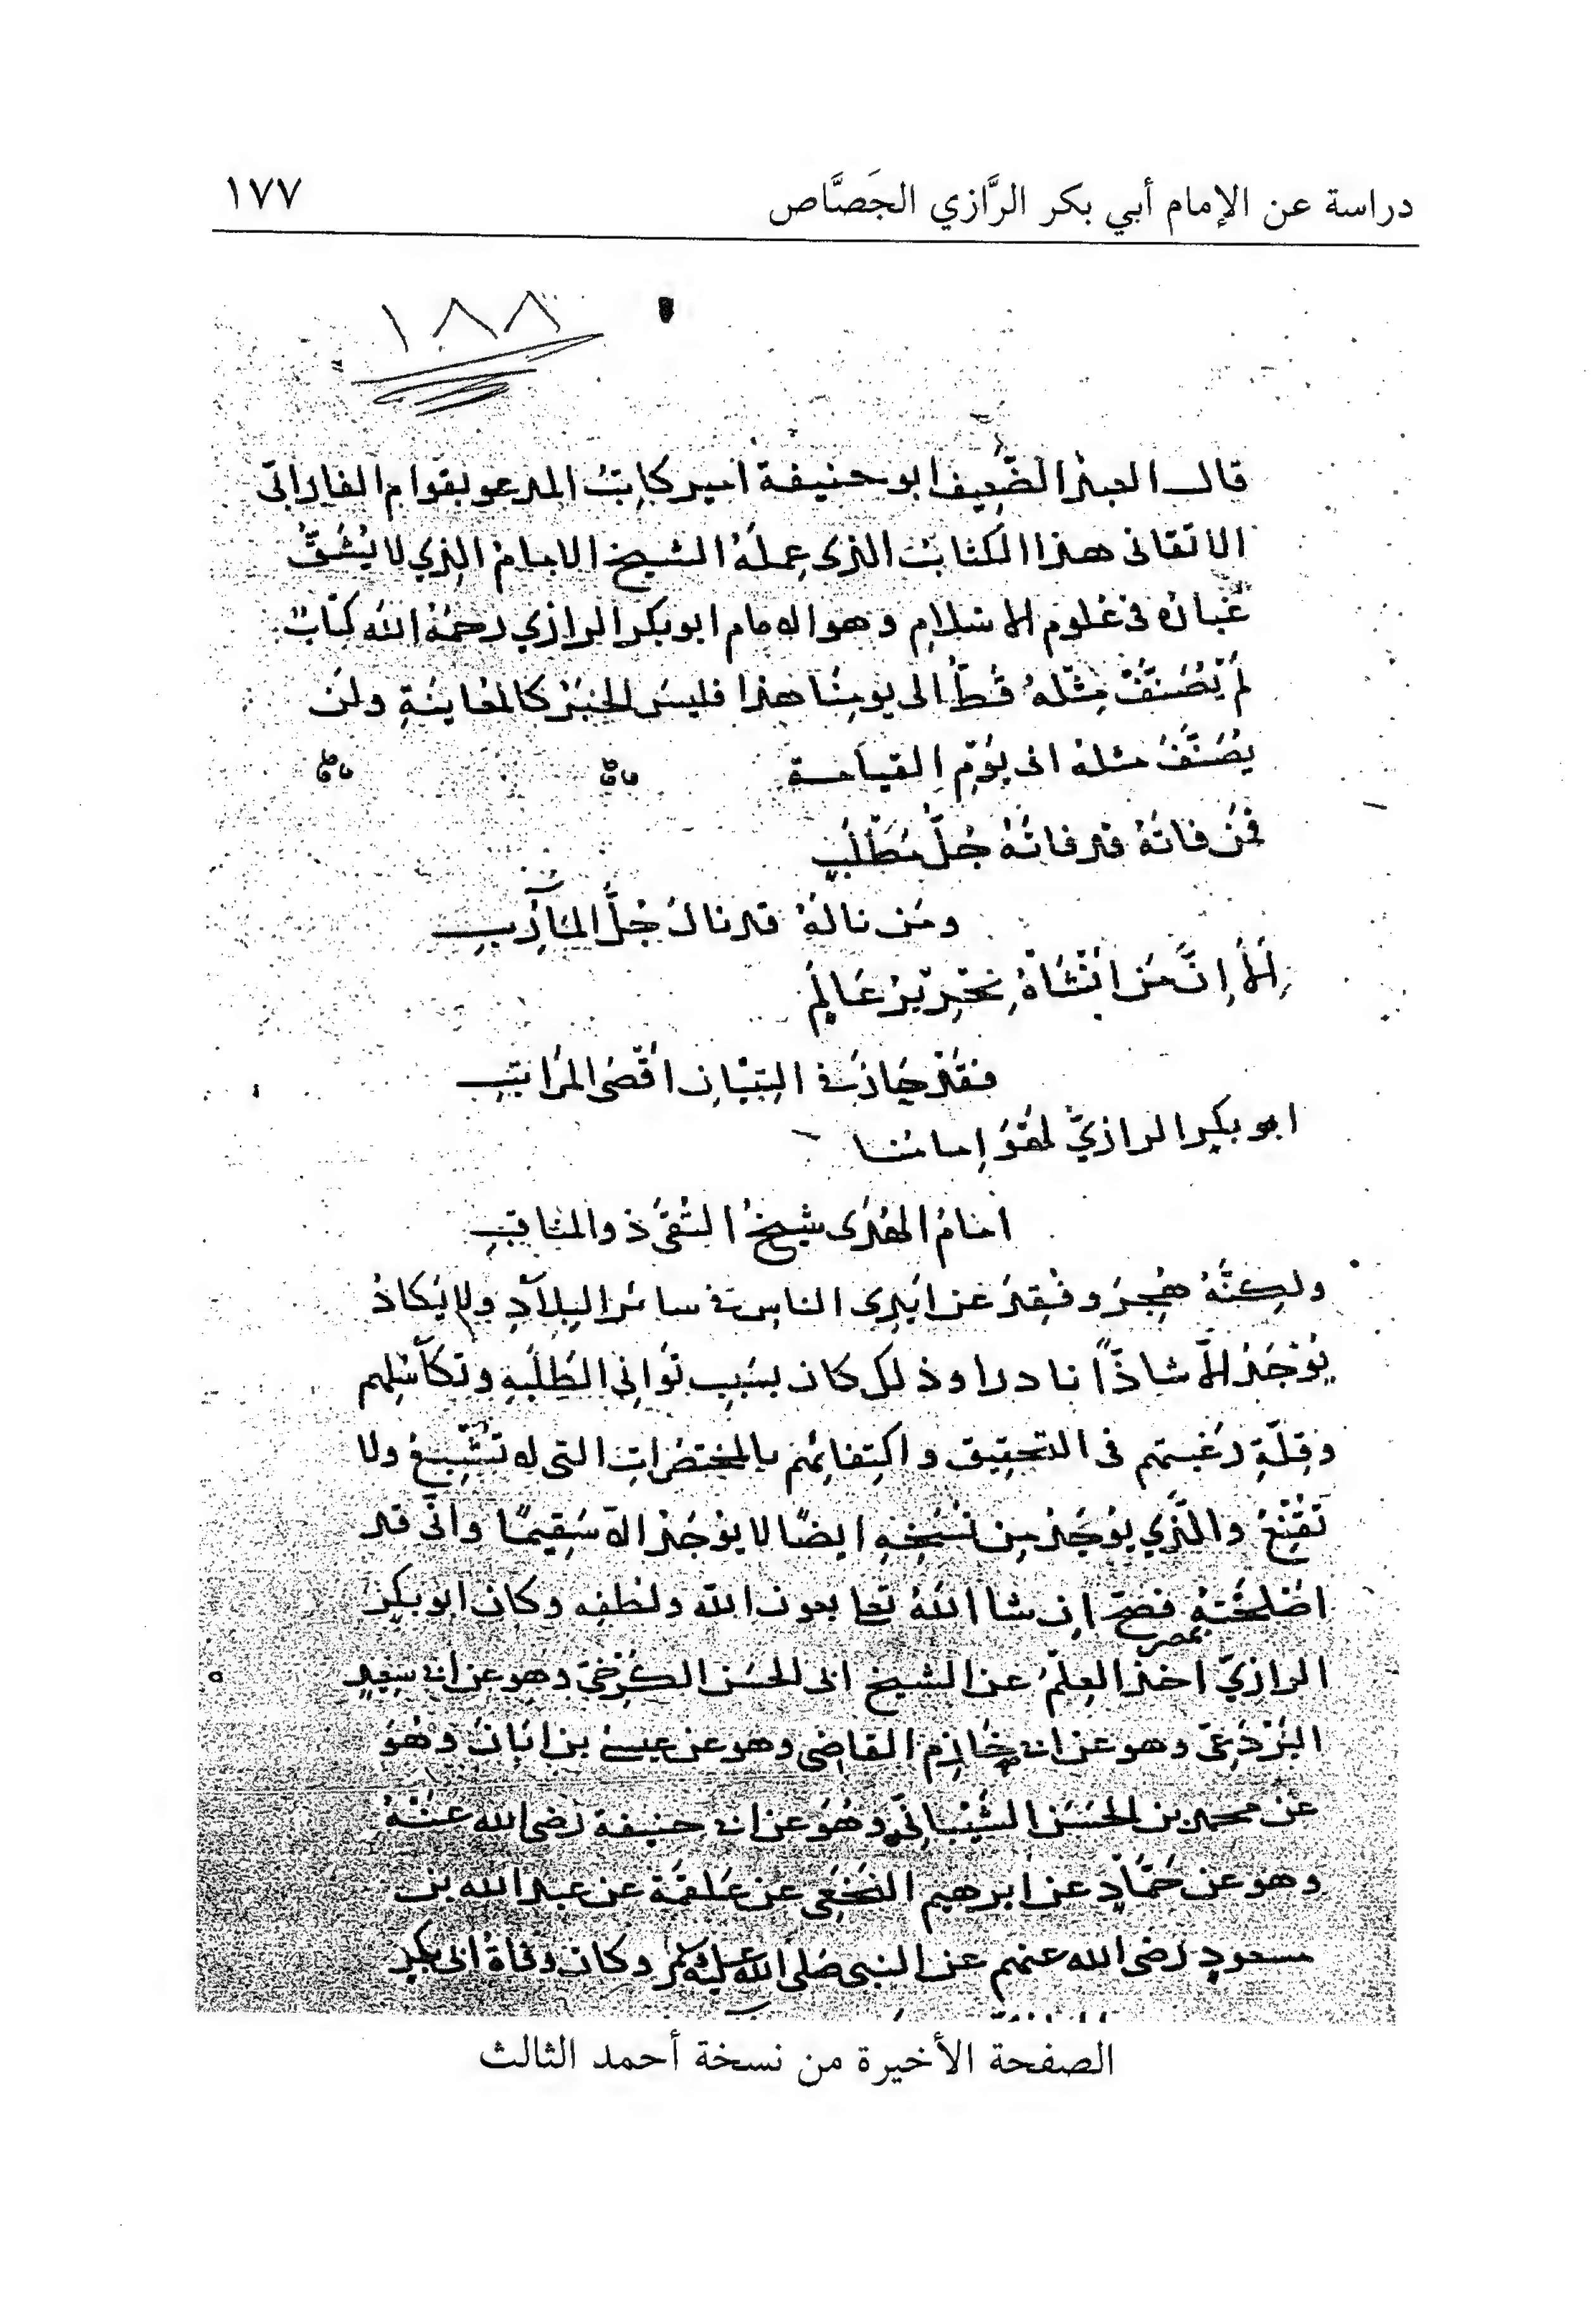 دراسة عن الإمام أبي بكر الرَّازي الجَصَّاص ١٧٧
١٨٨
قال العبد الضَّعِيف ابو حنيفة امير كاتِبُ المدعو بقوام الفارابى
الاتقانى هذا الكتابُ الذى عمِلهُ الشيخ الامامُ الذِي لا يُشَقُّ
غُبارُه فى عُلومِ الاسْلامِ وهو الامام ابو بكر الرازي رحمهُ الله كِتابٌ
لم يُصَنَّفْ مِثْلهُ قُطُّ الى يومِنَا هذا فليسَ الخبَرُ كالمُعَاينَةِ ولن
يُصَنَّفُ مثلهُ الى يَوْمِ القيامة
فَمَن فاتَهُ قد فاتَهُ جُلُّ مَطْلَبٍ
ومَن نالهُ قد نال جُلَّ المآرِبِ
الا إنَّ مَن انْشَاهُ نِحْرِيْرُ عَالِمٌ
فقَدْ حَازَ فى التِبْيَانِ اقْصَى المرَاتبِ
ابو بكرِ الرازيُّ لَهْوَ إمامُنا
امامُ الهُدَى شيخُ التُقَى ذو المناقبِ
ولكِنَّهُ هُجِرَ وفُقِدَ عن ايْدِى الناسِ فى سائر البِلادِ ولا يَكادُ
يُوْجَدُ الاَّ شاذًّا نادرا وذلك كان بسَبَبِ تَوَانِى الطَّلَبةِ وتَكَاسُلِهم
وقِلَّةِ رَغبتهم فى التحقِيق واكتِفائِهم بالمختصَراتِ التى لا تُشْبِعُ ولا
تُقْنِعُ والذِي يُوْجَدُ مِن نُسَخِهِ ايضًا لا يوْجَدُ الاَّ سَقِيمًا وانّى قد
اصْلَحْتُهُ فصَحَّ إن شا اللهُ تعا بعون الله ولُطْفِهِ وكان ابو بكرٍ
بمصر
الرازيُّ اخذ العِلْمَ عن الشيخ ابى الحسَن الكَرْخىّ وهو عن ابى سعِيدٍ
البَرْدَعىّ وهو عن ابى خازِم القاضِى وهو عن عيسى بن ابَانَ وهُوَ
عن محمد بن الحَسَن الشَّيْبانىّ وهُوَ عن ابى حنيفة رَضى الله عنْهُ
وهو عن حَمَّادٍ عن ابرهيم النخَعِى عن عَلقَمَة عن عبد الله بن
مسعودٍ رَضى الله عنهم عن النبى صَلى الله عليه وسلم وكان وفاةُ ابى بكرٍ
الصفحة الأخيرة من نسخة أحمد الثالث